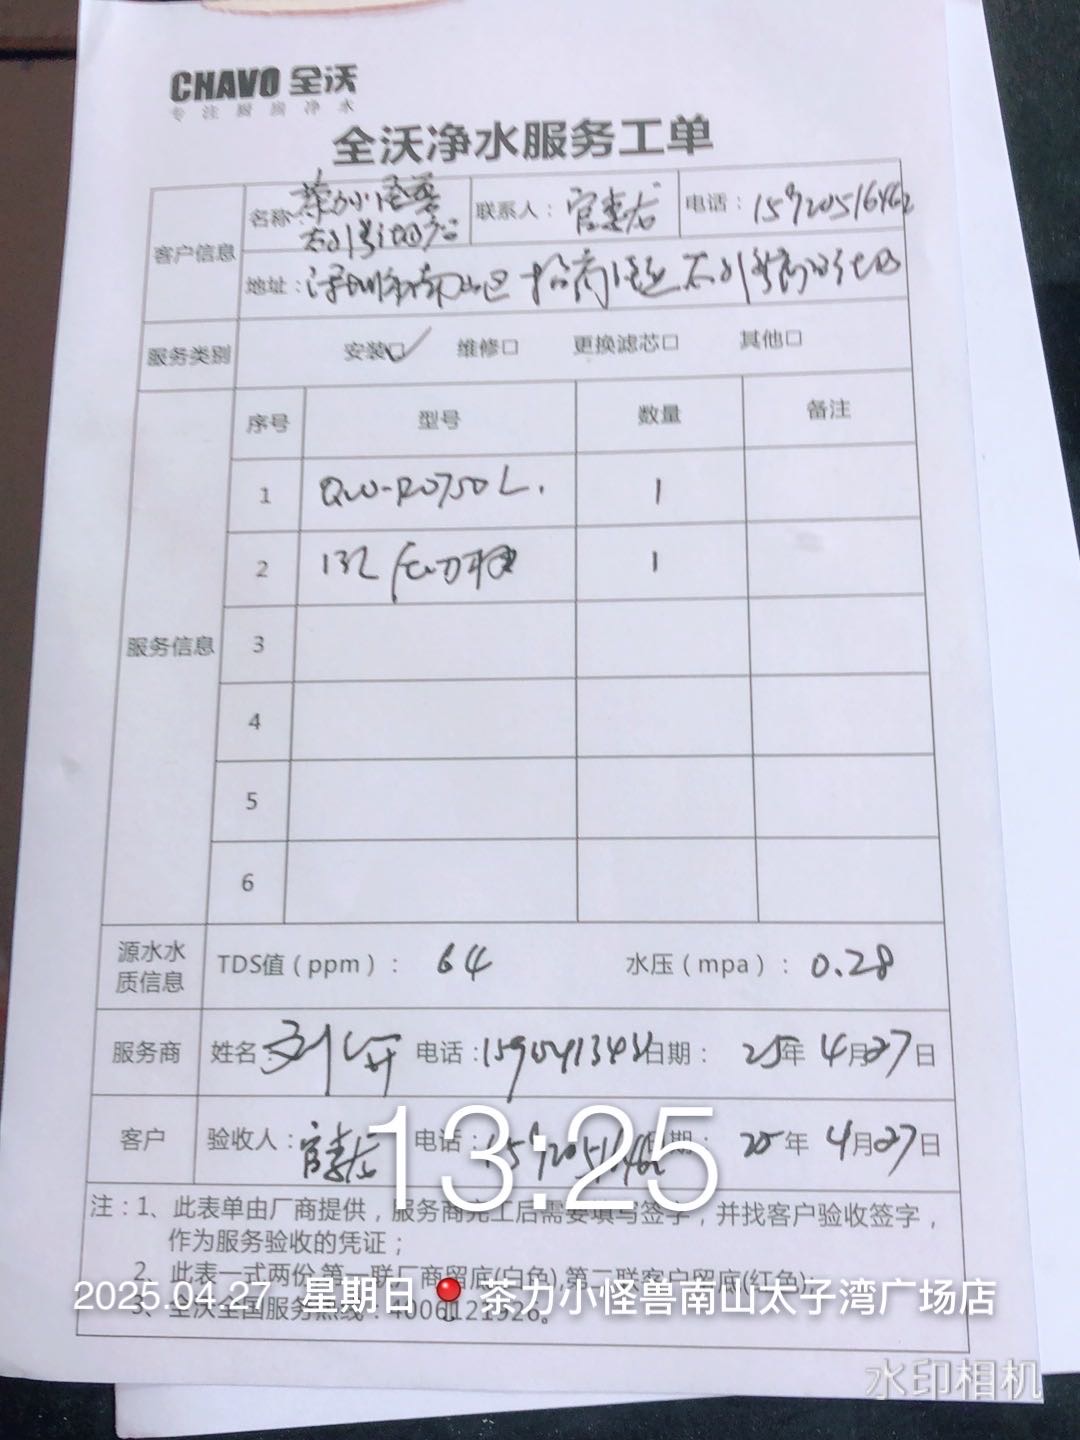 CHAVO 全沃
专注厨房净水
全沃净水服务工单
客户信息
名称：茶力小怪兽
联系人：官惠龙
电话：15920516462
地址：深圳市南山区招商街道太子湾商业广场
服务类别
安装☑ 维修□ 更换滤芯□ 其他□
服务信息
序号 型号 数量 备注
1 QW-RO750L. 1
2 13L压力桶 1
3
4
5
6
源水水质信息
TDS值（ppm）： 64 水压（mpa）：0.28
服务商 姓名：刘 开 电话： 日期： 25年 4月27日
客户 验收人：官惠龙 电话：15920516462 日期： 25年 4月27日
13:25
注：1、此表单由厂商提供，服务商完工后需要填写签字，并找客户验收签字，
作为服务验收的凭证；
2、此表一式两份,第一联厂商留底(白色),第二联客户留底(红色);
3、全沃全国服务热线：4006121526。
2025.04.27 星期日 茶力小怪兽南山太子湾广场店
水印相机